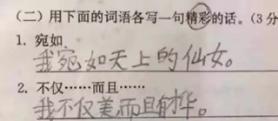 (二)用下面的词语各写一句精彩的话。(3分
1. 宛如
我宛如天上的仙女。
2. 不仅……而且……
我不仅美而且有才华。